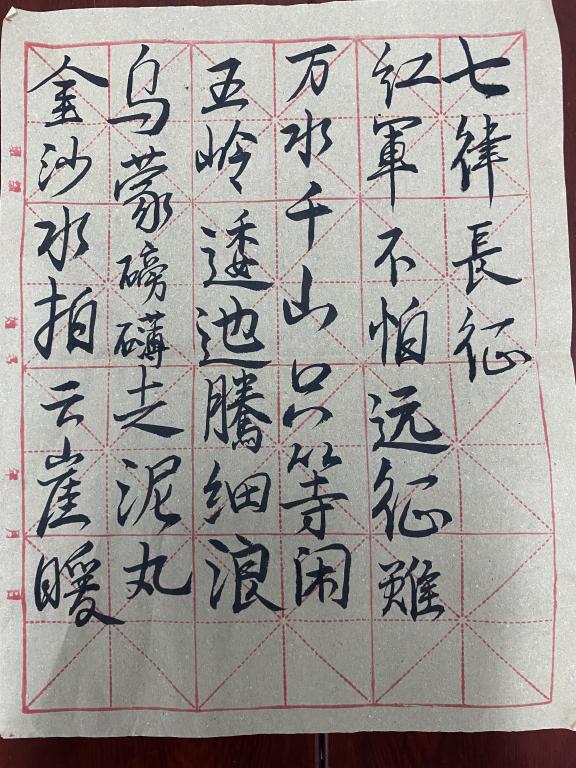 七律長征
紅軍不怕远征難
万水千山只等闲
五岭逶迤騰细浪
乌蒙磅礴走泥丸
金沙水拍云崖暖